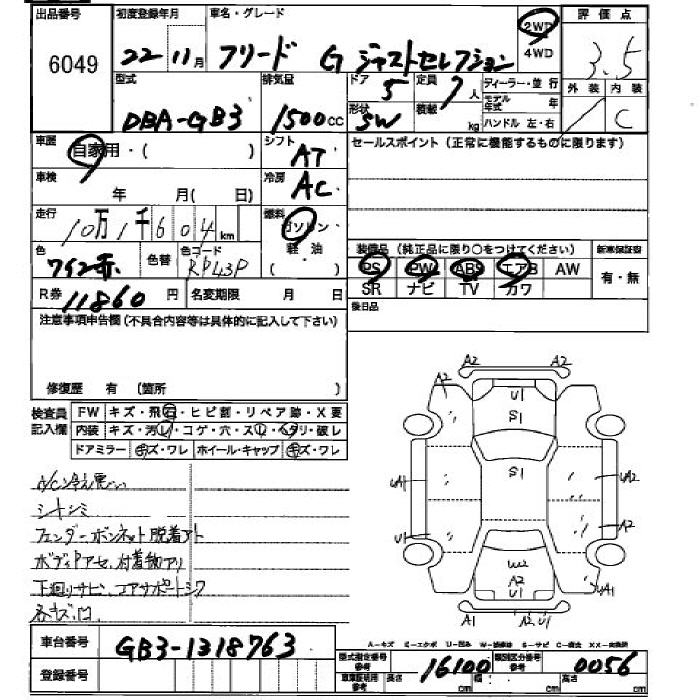 出品番号 初度登録年月 車名・グレード 2WD 評価点
6049 22 11月 フリード G ジャストセレクション 4WD 3.5
型式 排気量 ドア 5 定員 7人 ディーラー・並行 外装 内装
DBA-GB3 1500cc 形状 SW 積載 kg モデル年式 年 C
ハンドル 左・右
車歴 自家用・( ) シフト AT セールスポイント(正常に機能するものに限ります)
車検 年 月(日) 冷房 AC
走行 10万1千604km 燃料 ガソリン・
軽油・
( )
色 ワイン赤 色替 色コード RP43P 装備品(純正品に限り○をつけてください) 新車保証書
PS PW ABS エアB AW 有・無
R券 11860円 名変期限 月 日 SR ナビ TV カワ
注意事項申告欄(不具合内容等は具体的に記入して下さい) 後日品
修復歴 有 (箇所 )
検査員記入欄 FW キズ・飛石・ヒビ割・リペア跡・X要
内装 キズ・汚レ・コゲ・穴・スレ・ヘタリ・破レ
ドアミラー キズ・ワレ ホイール・キャップ キズ・ワレ
A/C冷え悪い
シートシミ
フェンダーボンネット脱着アト
ボディPアセ、付着物アリ
下廻りサビ、エアサポートシワ
各キズ凹
A2 A2
A2 U1 A2
S1
S1
UA1 UA2
U1 A2
W2
A2
U1
A1 A2 U1
車台番号 GB3-1318763
A-キズ E-エクボ U-凹み W-補修跡 S-サビ C-腐食 XX-交換済
登録番号 型式指定番号参考 16100 類別区分番号参考 0056
車庫証明用参考 長さ cm 幅: cm 高さ cm